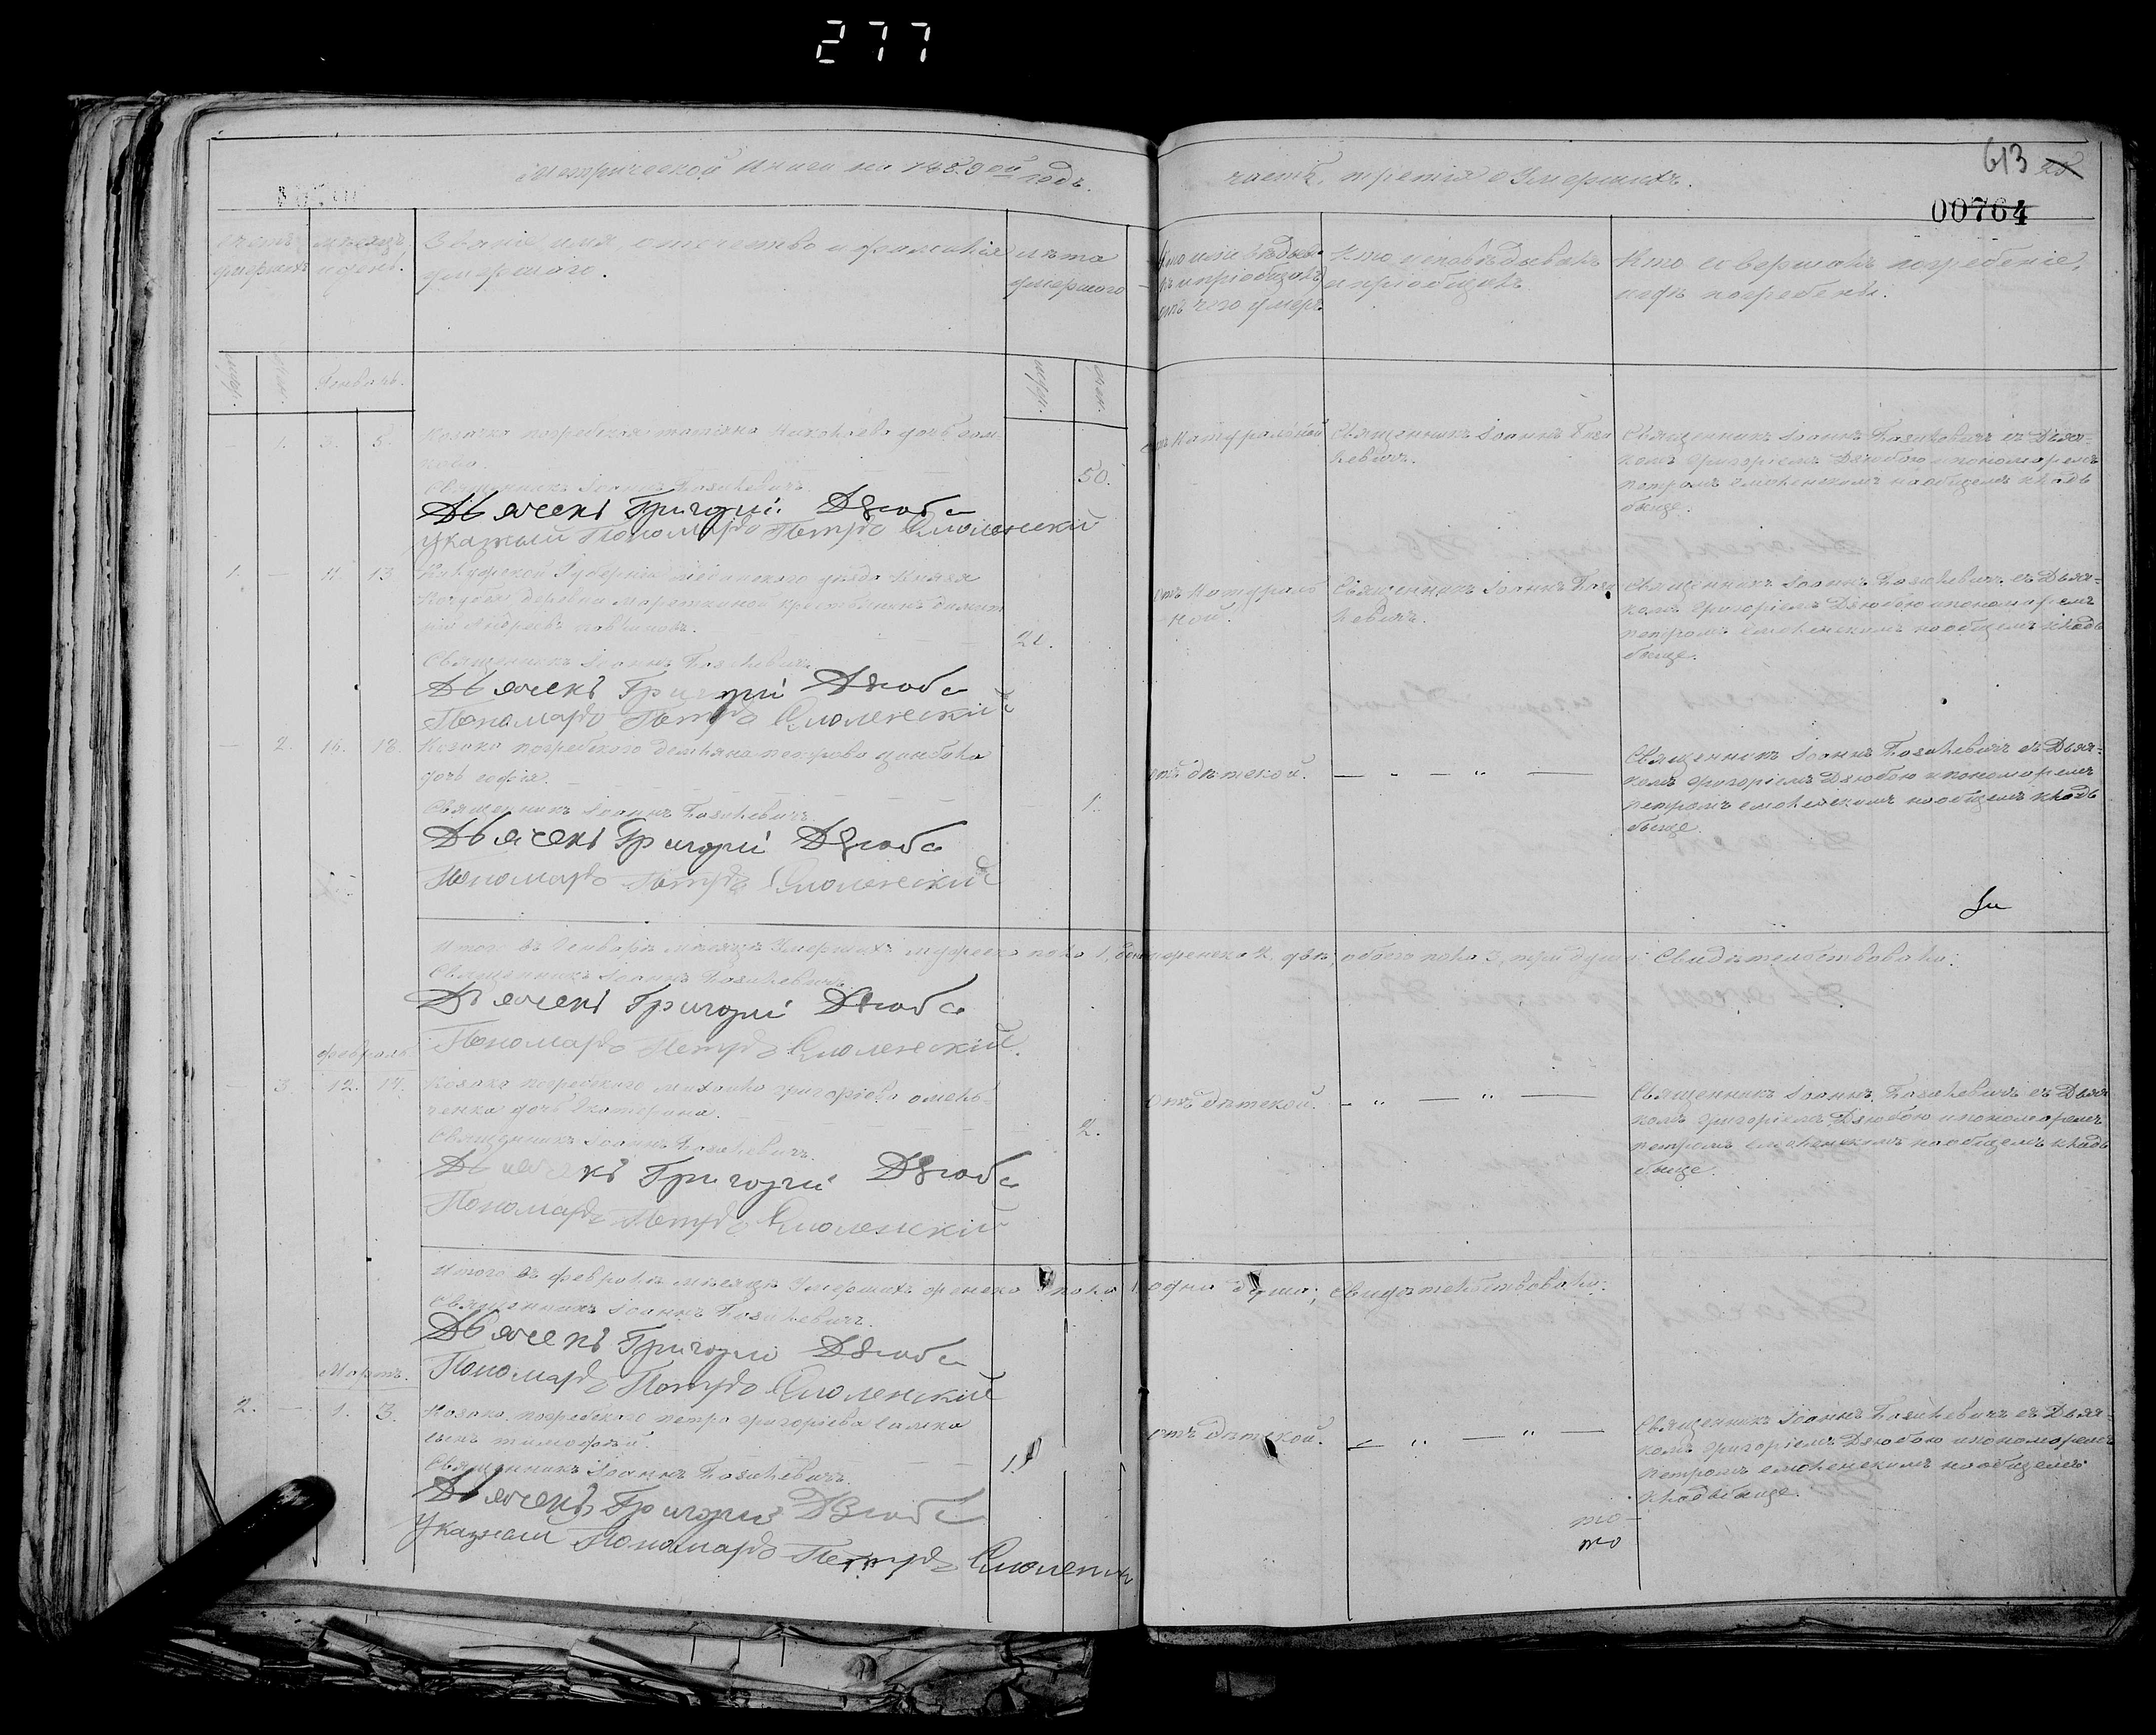 277
Метрической книги на 1859ой годъ.
часть третія о Умершихъ.
613
00764
Счетъ умершихъ
мѣсяцъ и день.
Званіе, имя, отечество и фамилія
умершаго.
лѣта
умершаго
отъ чего умеръ
Кто исповѣдывалъ
и пріобщалъ
Кто совершалъ погребеніе,
и гдѣ погребены.
муж.
жен.
Генварь.
муж.
жен.
— 1. 3. 5.
Козачка погребская татіяна Николаева дочь
Священникъ Іоаннъ Базилевичъ.
50.
Дьячекъ Григорій Дзюба
Указный Пономарь Петръ Смоленскій
отъ Натуральной
Священникъ Іоаннъ Бази
левичъ.
Священникъ Іоаннъ Базилевичъ съ Дьяч-
комъ Григоріемъ Дзюбою и пономаремъ
петромъ смоленскимъ на общемъ кладь
бище.
1. — 11. 13.
Калужской Губерніи уѣзда Князя
деревни крестьянинъ димит
рій Андреевъ
21.
Священникъ Іоаннъ Базилевичъ
Дьячекъ Григорій Дзюба
Пономарь Петръ Смоленскій
отъ Натураль
ной.
Священникъ Іоаннъ Бази
левичъ.
Священникъ Іоаннъ Базилевичъ съ Дьяч-
комъ Григоріемъ Дзюбою и пономаремъ
петромъ смоленскимъ на общемъ кладь
бище.
— 2. 16. 18.
Козака погребского демьяна петрова
дочь софія.
1.
Священникъ Іоаннъ Базилевичъ.
Дьячекъ Григорій Дзюба
Пономарь Петръ Смоленскій
отъ дѣтской. — „ — „ —
Священникъ Іоаннъ Базилевичъ съ Дьяч-
комъ Григоріемъ Дзюбою и пономаремъ
петромъ смоленскимъ на общемъ кладь
бище.
Итого въ Генварѣ мѣсяцѣ Умершихъ мужеска пола 1, женска 2, двѣ, обоего пола 3, три души: Свидѣтельствовали:
Священникъ Іоаннъ Базилевичъ.
Дьячекъ Григорій Дзюба
Пономарь Петръ Смоленскій.
февраль
— 3. 12. 14.
Козака погребского михаила григоріева омель-
ченка дочь Екатерина.
2.
Священникъ Іоаннъ Базилевичъ.
Дьячекъ Григорій Дзюба
Пономарь Петръ Смоленскій
отъ дѣтской. — „ — „ —
Священникъ Іоаннъ Базилевичъ съ Дьяч
комъ Григоріемъ Дзюбою и пономаремъ
петромъ смоленскимъ на общемъ кладь
бище.
Итого въ февралѣ мѣсяцѣ Умершихъ женска пола 1, одна душа; свидѣтельствовали:
Священникъ Іоаннъ Базилевичъ.
Дьячекъ Григорій Дзюба
Пономарь Петръ Смоленскій
Мартъ.
2. — 1. 3.
Козака погребского петра григоріева
сынъ тимофей.
1.
Священникъ Іоаннъ Базилевичъ.
Дьячекъ Григорій Дзюба
Указный Пономарь Петръ Смоленск
отъ дѣтской. — „ — „ —
Священникъ Іоаннъ Базилевичъ съ Дьяч-
комъ Григоріемъ Дзюбою и пономаремъ
петромъ смоленскимъ на общемъ
кладьбище.
то
то